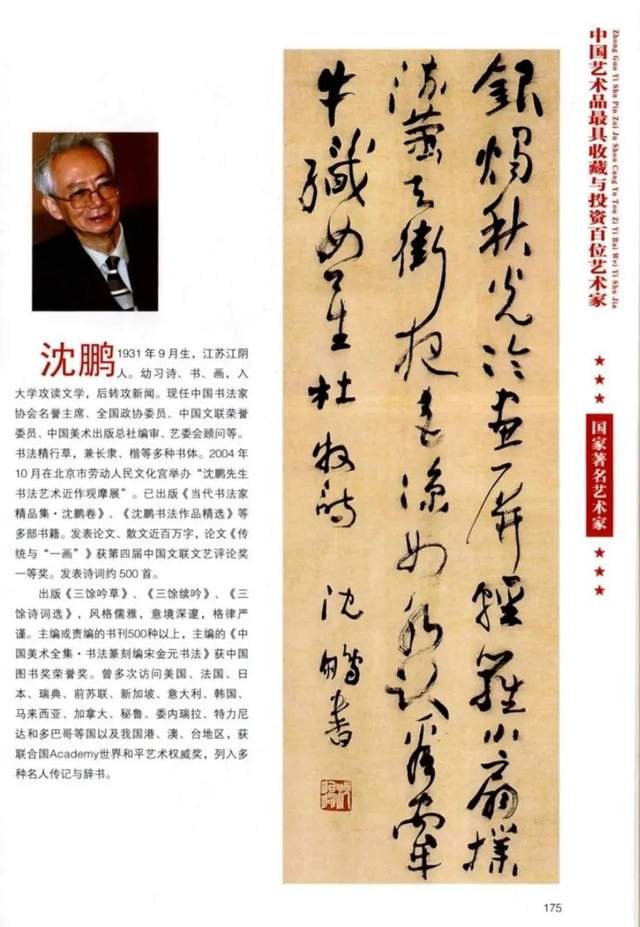 沈鹏 1931年9月生，江苏江阴
人。幼习诗、书、画，入
大学攻读文学，后转攻新闻。现任中国书法家
协会名誉主席、全国政协委员、中国文联荣誉
委员、中国美术出版总社编审、艺委会顾问等。
书法精行草，兼长隶、楷等多种书体。2004年
10月在北京市劳动人民文化宫举办“沈鹏先生
书法艺术近作观摩展”。已出版《当代书法家
精品集·沈鹏卷》、《沈鹏书法作品精选》等
多部书籍。发表论文、散文近百万字，论文《传
统与“一画”》获第四届中国文联文艺评论奖
一等奖。发表诗词约500首。
出版《三馀吟草》、《三馀续吟》、《三
馀诗词选》，风格儒雅，意境深邃，格律严
谨。主编或责编的书刊500种以上，主编的《中
国美术全集·书法篆刻编宋金元书法》获中国
图书奖荣誉奖。曾多次访问美国、法国、日
本、瑞典、前苏联、新加坡、意大利、韩国、
马来西亚、加拿大、秘鲁、委内瑞拉、特力尼
达和多巴哥等国以及我国港、澳、台地区，获
联合国Academy世界和平艺术权威奖，列入多
种名人传记与辞书。
銀燭秋光冷畫屏輕羅小扇撲
流螢天街夜色涼如水卧看牽
牛織女星 杜牧詩 沈鵬書
Zhong Guo Yi Shu Pin Zui Ju Shou Cang Yu Tou Zi Yi Bai Wei Yi Shu Jia
中国艺术品最具收藏与投资百位艺术家
★★★ 国家著名艺术家 ★★★
175